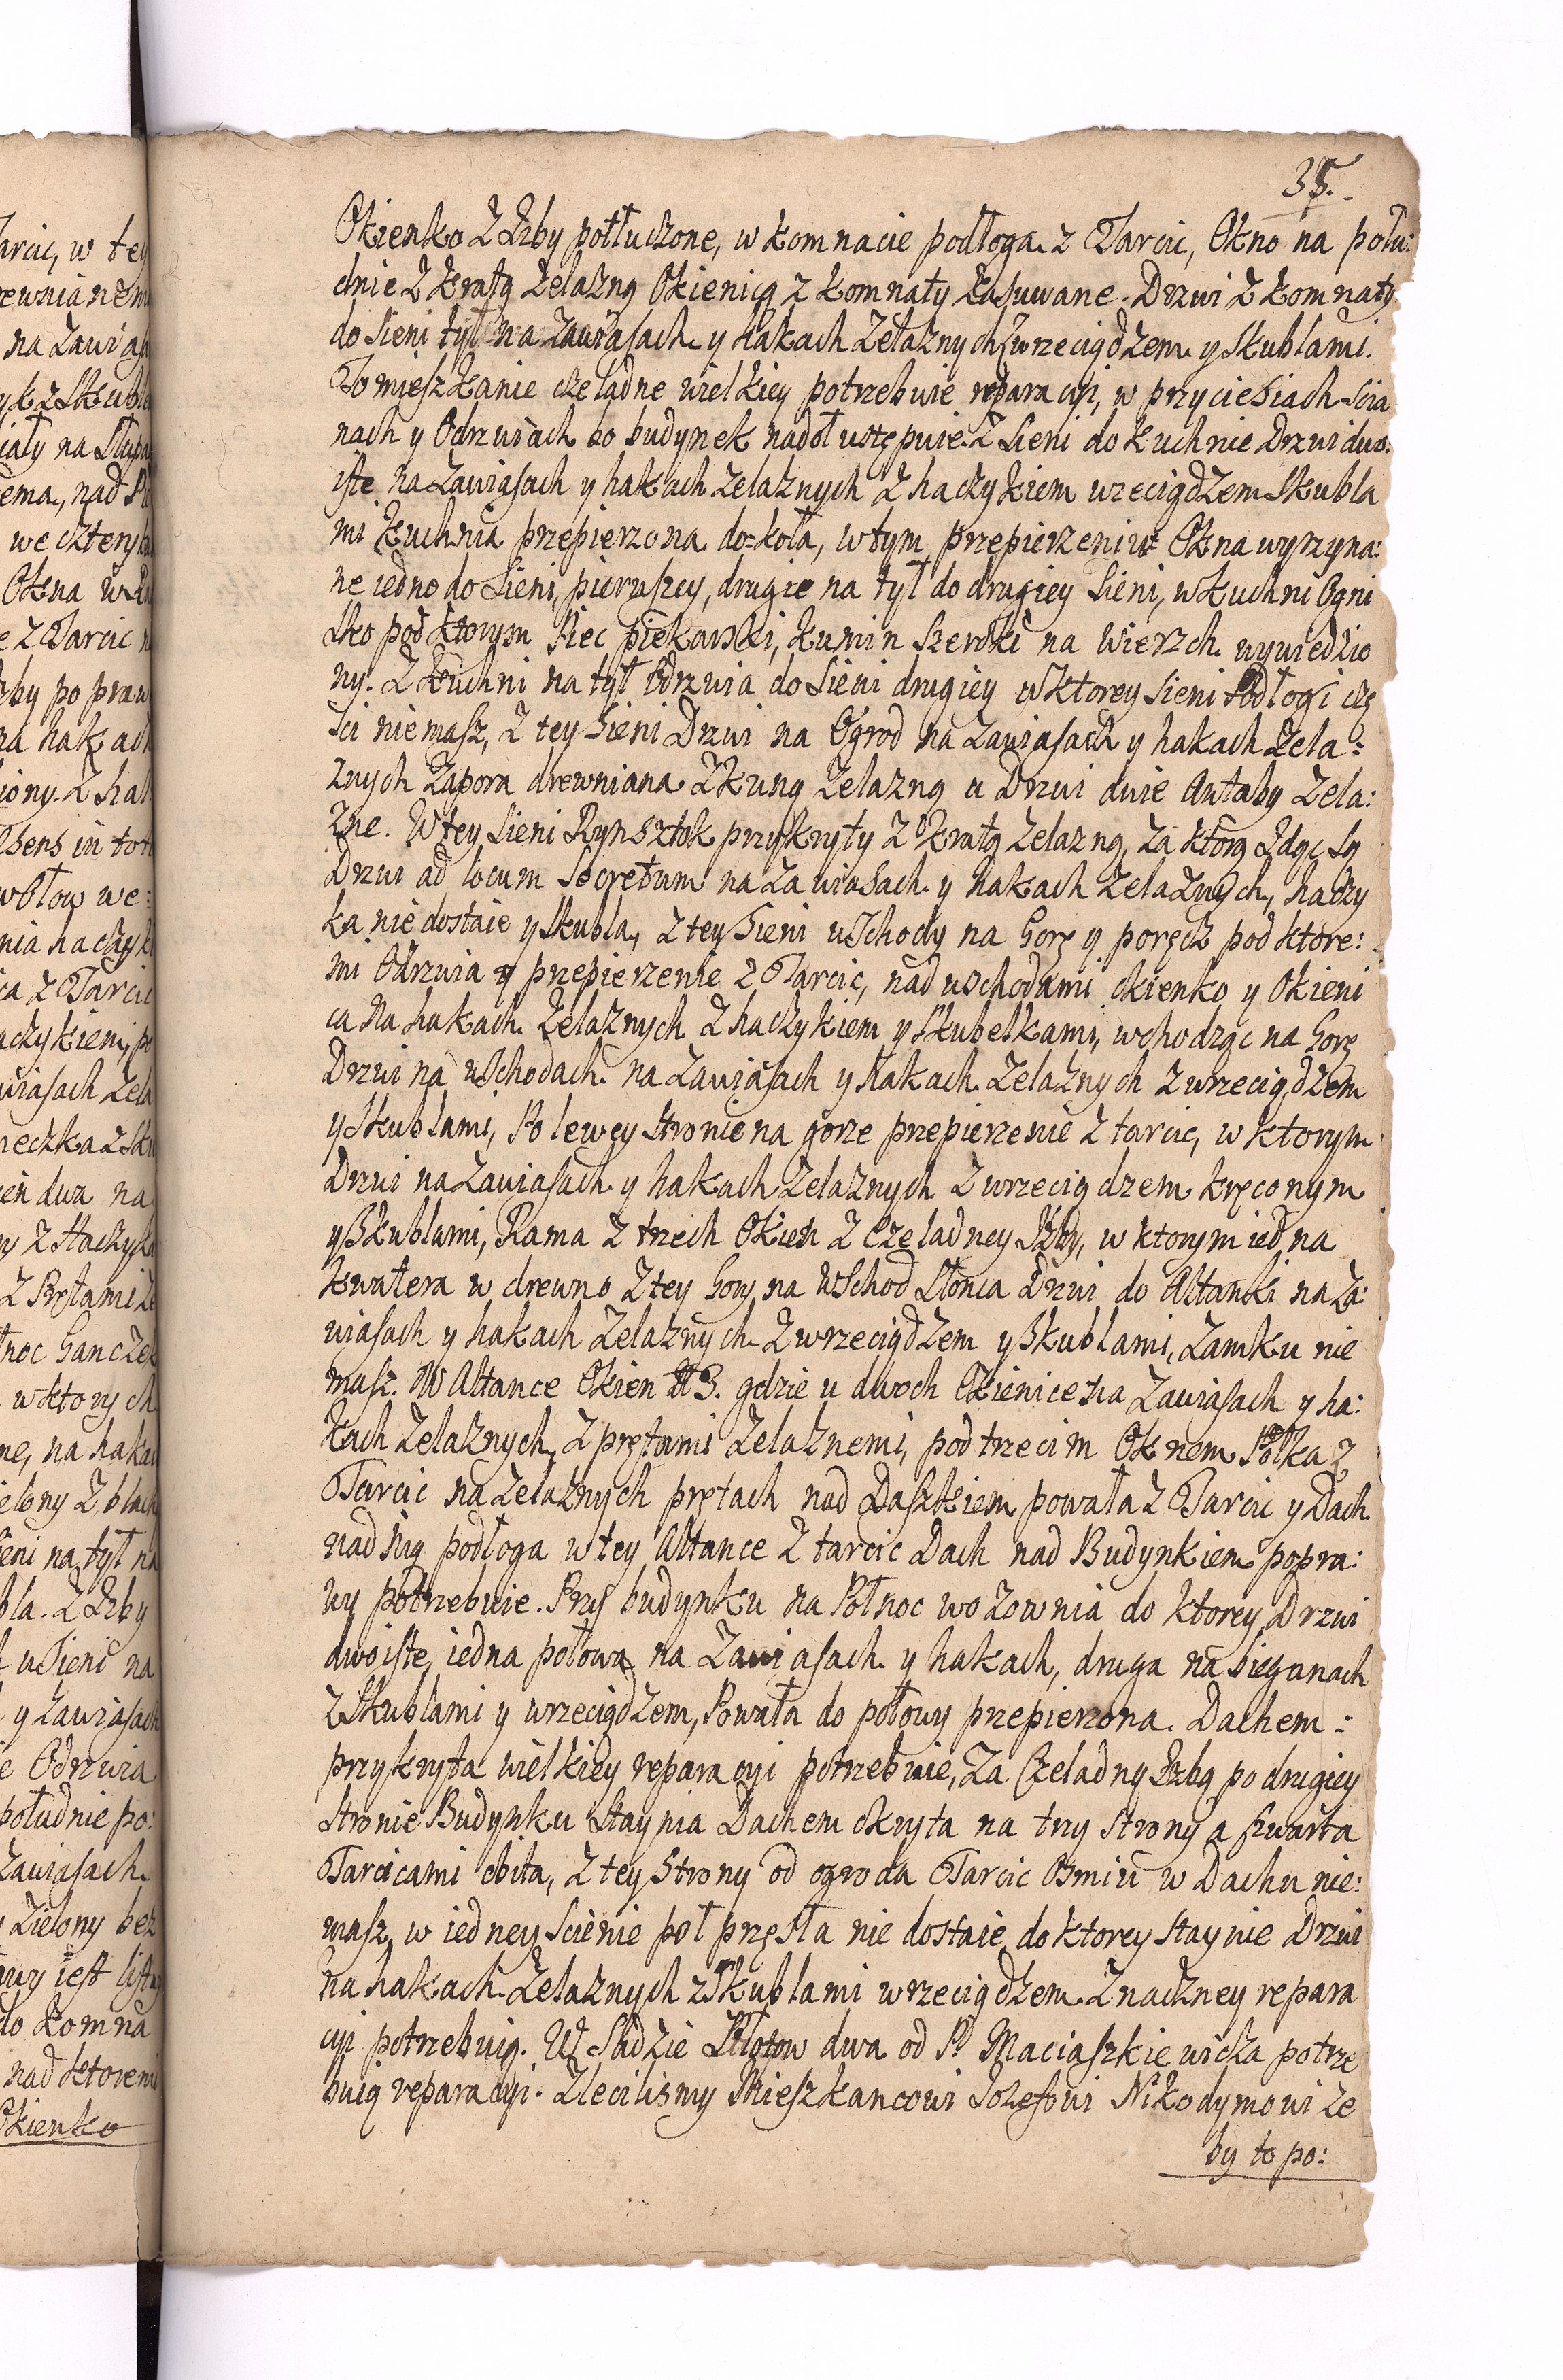 35.
Okienko z Izby potłuczone, w komnacie podłoga z Tarcic, Okno na połu:
dnie z kratą żelazną Okienicą z komnaty zasuwane. Drzwi z komnaty
do sieni tył na zawiasach y hakach żelaznych z wrzeciądzem y skublami.
To mieszkanie czeladne wielkiey potrzebuie reparacyi, w przyciesiach scia
nach y Odrzwiach bo budynek nadoł ustępuie. Z Sieni do kuchnie Drzwi dwo:
iste na zawiasach y hakach żelaznych z haczykiem wrzeciądzem skubla
mi kuchnia przepierzona do=koła, w tym przepierzeniu Okna wyrzyna:
ne iedno do Sieni pierwszey, drugie na tył do drugiey Sieni, w kuchni Ogni
sko pod ktorym Piec piekarski, kumin szeroki na wierzch wywiedzio
ny. Z kuchni na tył Odrzwia do Sieni drugiey w ktorey sieni Podłogi czę
sci niemasz, z tey Sieni Drzwi na Ogrod na zawiasach y hakach żela=
znych zapora drewniana z kuną żelazną u Drzwi dwie Antaby żela:
zne. W tey Sieni Rynsztok przykryty z kratą żelazną, za ktorą idąc są
Drzwi ad locum Secretum na zawiasach y hakach żelaznych, haczy
ka nie dostaie y skubla, z tey Sieni wschody na Gorę y poręcz pod ktore:
mi Odrzwia y przepierzenie z Tarcic, nad wschodami okienko y Okieni
ca na hakach żelaznych z haczykiem y skubelkami, wchodząc na Gorę
Drzwi na wschodach na zawiasach y hakach żelaznych z wrzeciądzem
y skublami, Po lewey stronie na gorze przepierzenie z tarcic, w ktorym
Drzwi na zawiasach y hakach żelaznych z wrzeciądzem kręconym
y skublami, Rama z trzech Okien z Czeladney Izby, w ktorym iedna
kwatera w drewno z tey Gory na wschod słonca Drzwi do Altanki na za:
wiasach y hakach żelaznych z wrzeciądzem y skublami, zamku nie
masz. W Altance Okien N 3. gdzie u dwoch Okienice na zawiasach y ha:
kach żelaznych, z prętami żelaznemi, pod trzecim Oknem Połka z
Tarcic na żelaznych prętach nad Daszkiem powała z Tarcic y Dach
nad nią podłoga w tey Altance z tarcic Dach nad Budynkiem popra:
wy potrzebuie. Przy budynku na Połnoc wozownia do ktorey Drzwi
dwoiste, iedna połowa na zawiasach y hakach, druga na biegunach
z skublami y wrzeciądzem, Powała do połowy przepierzona. Dachem =
przykryta wielkiey reparacyi potrzebuie, za Czeladną Izbą po drugiey
stronie Budynku staynia Dachem okryta na trzy strony a czwarta
Tarcicami obita, z tey strony od ogroda Tarcic Osmiu w Dachu nie:
masz, w iedney scienie poł przęsła nie dostaie do ktorey staynie Drzwi
na hakach żelaznych z skublami wrzeciądzem znaczney repara
cyi potrzebuią. W Sadzie Płotow dwa od P. Maciaszkiewicza potrze
buią reparacyi. Zlecilismy Mieszkancowi Jozefowi Nikodymowi że
by to po: